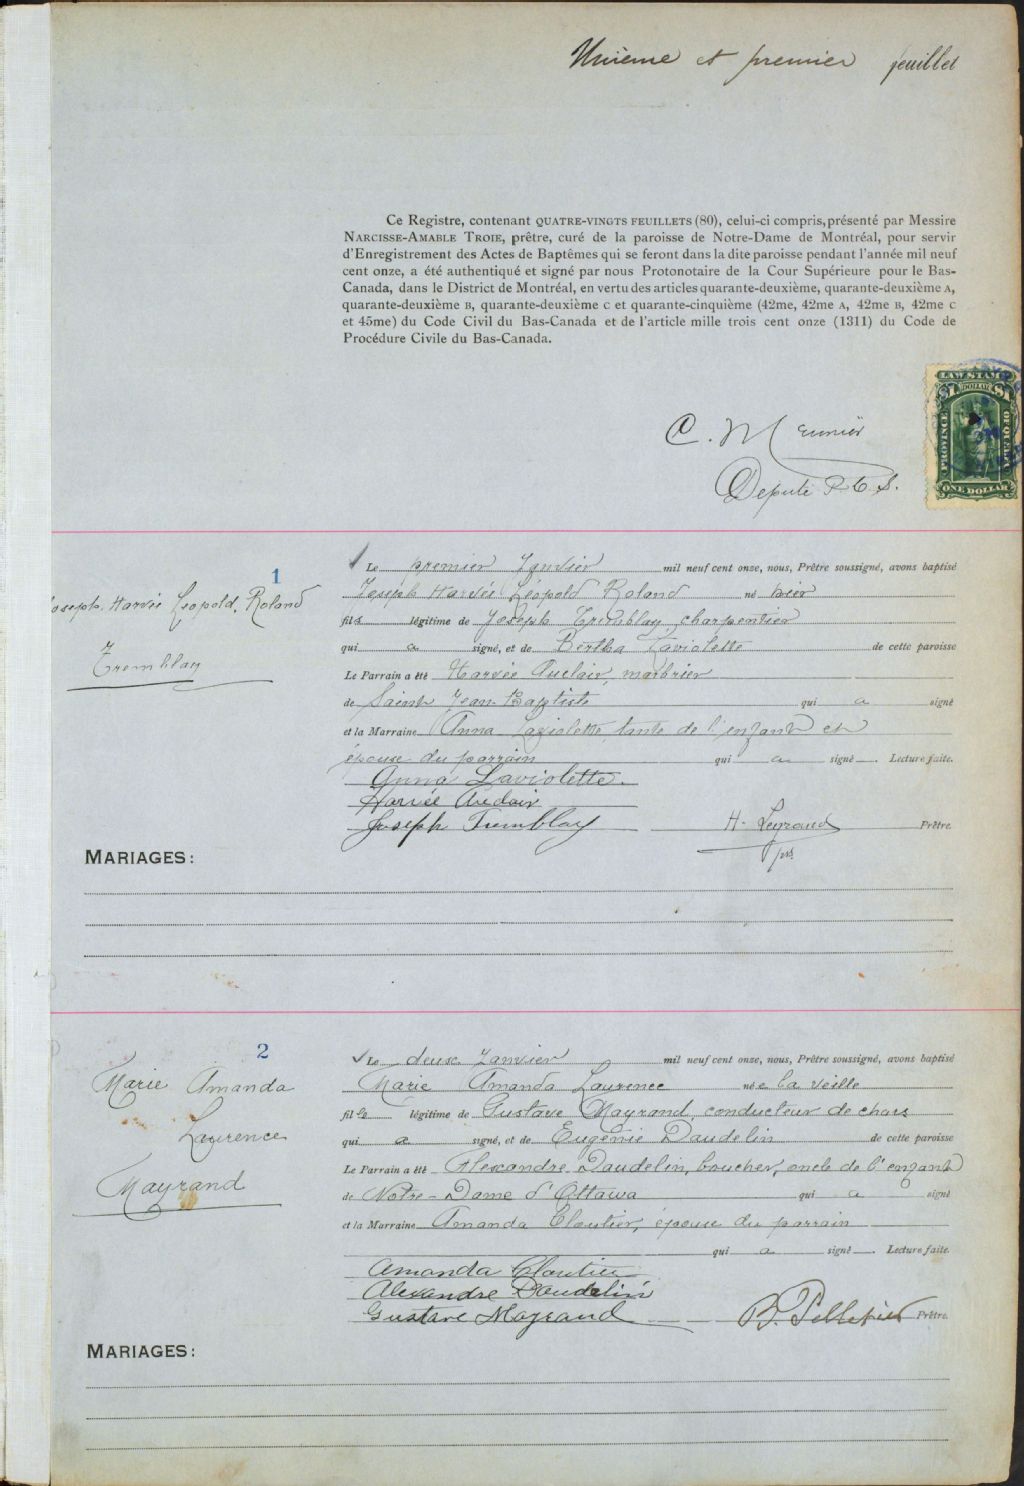 Unième et premier feuillet
Ce Registre, contenant QUATRE-VINGTS FEUILLETS (80), celui-ci compris, présenté par Messire
NARCISSE-AMABLE TROIE, prêtre, curé de la paroisse de Notre-Dame de Montréal, pour servir
d'Enregistrement des Actes de Baptêmes qui se feront dans la dite paroisse pendant l'année mil neuf
cent onze, a été authentiqué et signé par nous Protonotaire de la Cour Supérieure pour le Bas-
Canada, dans le District de Montréal, en vertu des articles quarante-deuxième, quarante-deuxième A,
quarante-deuxième B, quarante-deuxième C et quarante-cinquième (42me, 42me A, 42me B, 42me C
et 45me) du Code Civil du Bas-Canada et de l'article mille trois cent onze (1311) du Code de
Procédure Civile du Bas-Canada.
LAW STAMP
1 DOLLAR
PROVINCE OF QUEBEC
ONE DOLLAR
C. Meunier
Député P. C. S.
1
Joseph Harvée Léopold, Roland
Tremblay
Le premier Janvier mil neuf cent onze, nous, Prêtre soussigné, avons baptisé
Joseph Harvée Léopold Roland né hier
fils légitime de Joseph Tremblay, charpentier
qui a signé, et de Bertha Laviolette de cette paroisse
Le Parrain a été Harvée Auclair, marbrier
de Saint Jean-Baptiste qui a signé
et la Marraine Anna Laviolette, tante de l'enfant et
épouse du parrain qui a signé. Lecture faite.
Anna Laviolette.
Harvée Auclair
Joseph Tremblay H. Legrand Prêtre.
ptr
MARIAGES:
2
Marie Amanda
Laurence
Mayrand
Le deux Janvier mil neuf cent onze, nous, Prêtre soussigné, avons baptisé
Marie Amanda Laurence née la veille
fille légitime de Gustave Mayrand, conducteur de chars
qui a signé, et de Eugénie Daudelin de cette paroisse
Le Parrain a été Alexandre Daudelin, boucher, oncle de l'enfant
de Notre-Dame d'Ottawa qui a signé
et la Marraine Amanda Cloutier, épouse du parrain
qui a signé. Lecture faite.
Amanda Cloutier
Alexandre Daudelin
Gustave Mayrand B. Pelletier Prêtre.
MARIAGES: